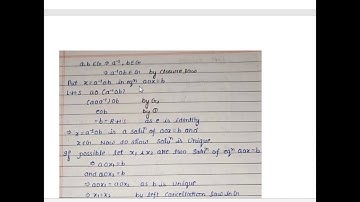 a,b ∈ G ⇒ a⁻¹, b ∈ G
⇒ a⁻¹ob ∈ G by closure law
Put x = a⁻¹ob in eqⁿ aox = b
LHS ao (a⁻¹ob)
(aoa⁻¹)ob by G₂
eob by ①
= b = R.H.S as e is identity
⇒ x = a⁻¹ob is a solⁿ of aox = b and
x ∈ G. Now to show solⁿ is unique
If possible let x₁ & x₂ are two solⁿ of eqⁿ aox = b
⇒ aox₁ = b
and aox₂ = b
⇒ aox₁ = aox₂ as b is unique
⇒ x₁ = x₂ by left cancellation law in G